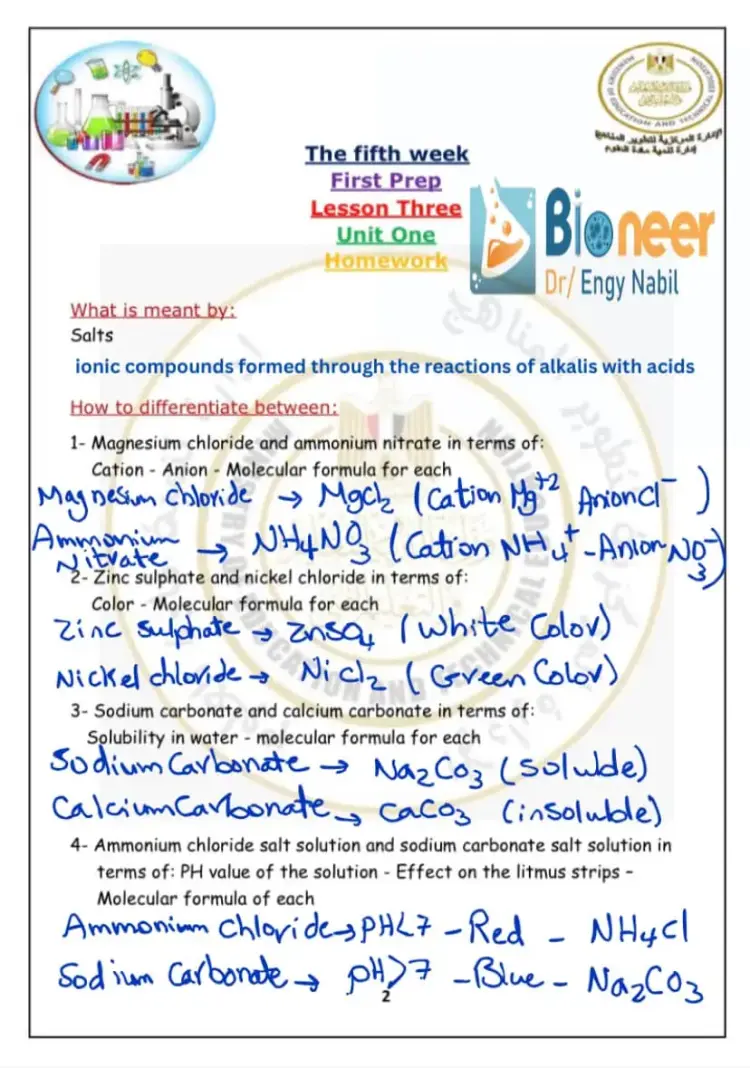 The fifth week
First Prep
Lesson Three
Unit One
Homework
Bioneer
Dr/ Engy Nabil
What is meant by:
Salts
ionic compounds formed through the reactions of alkalis with acids
How to differentiate between:
1- Magnesium chloride and ammonium nitrate in terms of:
Cation - Anion - Molecular formula for each
Magnesium chloride → MgCl2 (Cation Mg+2 Anion Cl-)
Ammonium Nitrate → NH4NO3 (Cation NH4+ -Anion NO3-)
2- Zinc sulphate and nickel chloride in terms of:
Color - Molecular formula for each
Zinc sulphate → ZnSO4 (White Color)
Nickel chloride → NiCl2 (Green Color)
3- Sodium carbonate and calcium carbonate in terms of:
Solubility in water - molecular formula for each
Sodium Carbonate → Na2CO3 (soluble)
Calcium Carbonate → CaCO3 (insoluble)
4- Ammonium chloride salt solution and sodium carbonate salt solution in
terms of: PH value of the solution - Effect on the litmus strips -
Molecular formula of each
Ammonium chloride → pH<7 - Red - NH4Cl
Sodium Carbonate → pH>7 - Blue - Na2CO3
2